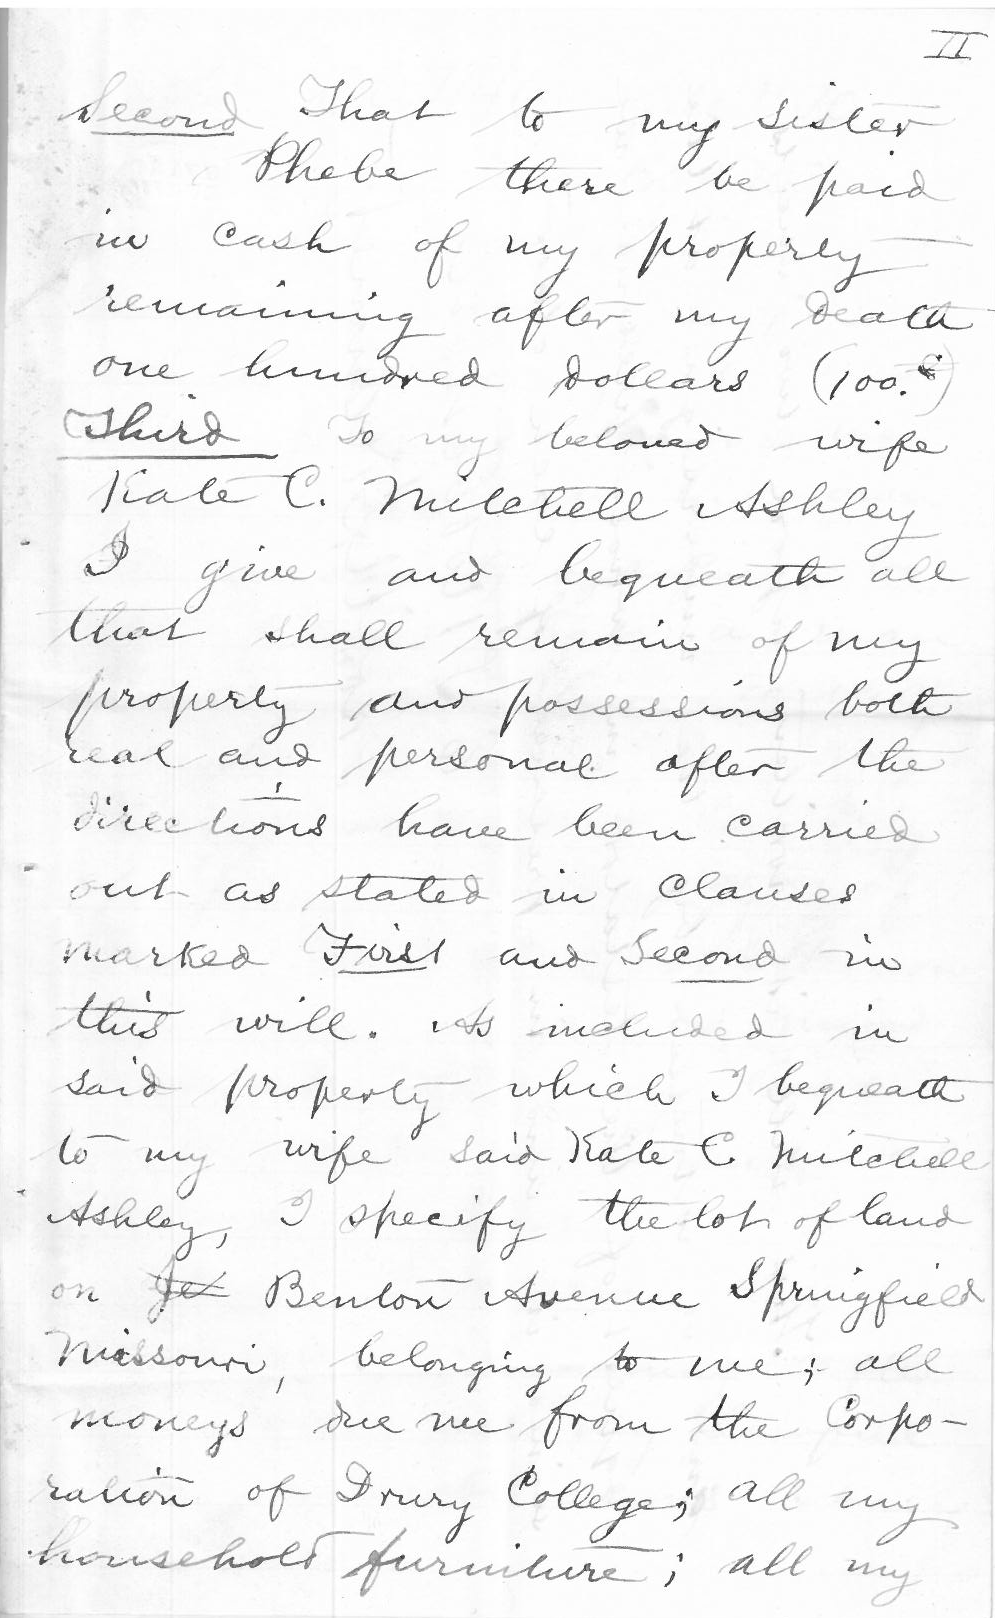 II
Second That to my sister
Phebe there be paid
in cash of my property
remaining after my death
one hundred dollars (100.)
Third To my beloved wife
Kate C. Mitchell Ashley
I give and bequeath all
that shall remain of my
property and possessions both
real and personal after the
directions have been carried
out as stated in clauses
marked First and Second in
this will. As included in
said property which I bequeath
to my wife said Kate C Mitchell
Ashley, I specify the lot of land
on Benton Avenue Springfield
Missouri, belonging to me; all
moneys due me from the Corpo-
ration of Drury College; all my
household furniture; all my